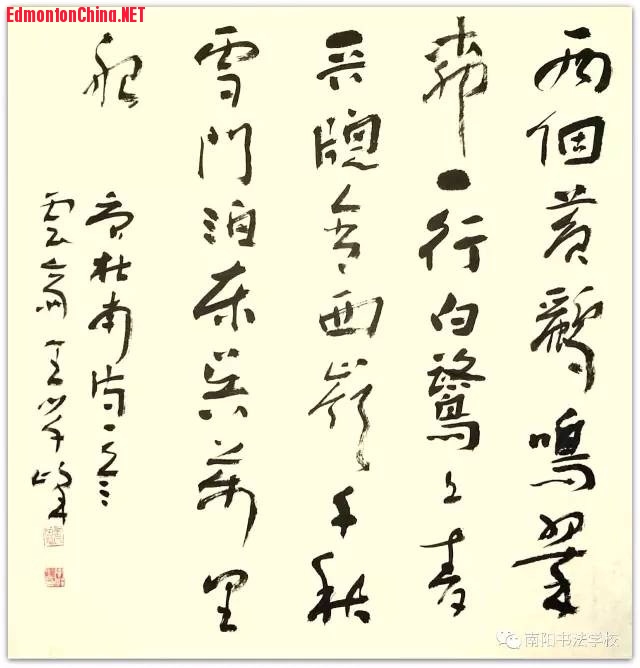 EdmontonChina.NET
两個黄鸝鳴翠
柳一行白鷺上青
天牕含西嶺千秋
雪門泊東吴萬里
船
杜甫诗
雲斋王学峰
南阳书法学校